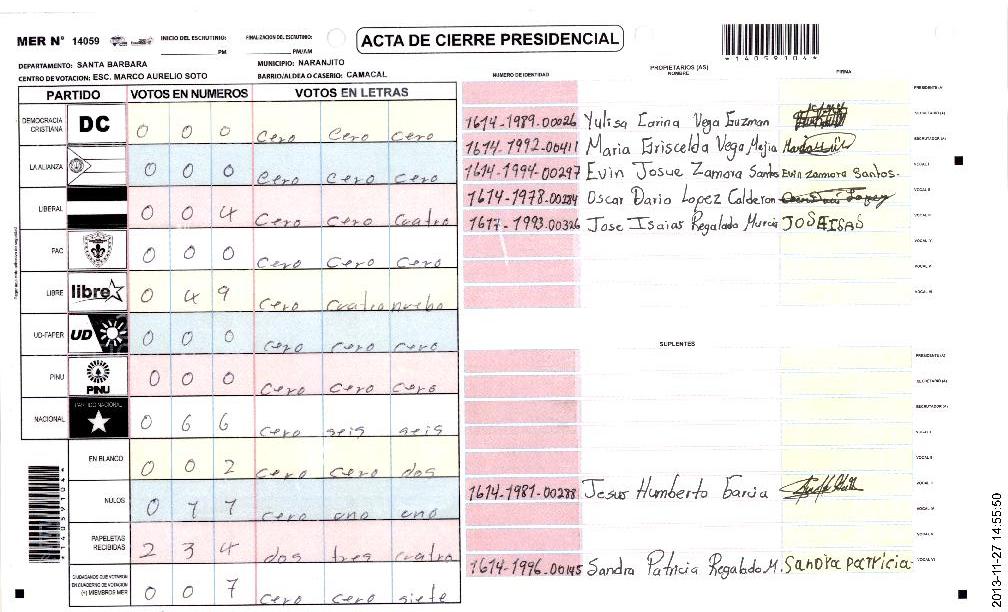 MER N° 14059 INICIO DEL ESCRUTINIO: PM FINALIZACION DEL ESCRUTINIO: PM/AM
ACTA DE CIERRE PRESIDENCIAL
*14059104*
DEPARTAMENTO: SANTA BARBARA MUNICIPIO: NARANJITO
CENTRO DE VOTACION: ESC. MARCO AURELIO SOTO BARRIO/ALDEA O CASERIO: CAMACAL
PARTIDO VOTOS EN NUMEROS VOTOS EN LETRAS
DEMOCRACIA CRISTIANA DC 0 0 0 Cero Cero Cero
LA ALIANZA 0 0 0 Cero Cero Cero
LIBERAL 0 0 4 Cero Cero Cuatro
PAC 0 0 0 Cero Cero Cero
LIBRE libre 0 4 9 Cero Cuatro nuebe
UD-FAPER UD 0 0 0 Cero Cero Cero
PINU PINU 0 0 0 Cero Cero Cero
NACIONAL PARTIDO NACIONAL 0 6 6 Cero seis seis
EN BLANCO 0 0 2 Cero Cero dos
NULOS 0 1 1 Cero uno uno
PAPELETAS RECIBIDAS 2 3 4 dos tres cuatro
CIUDADANOS QUE VOTARON EN CUADERNO DE VOTACION (+) MIEMBROS MER 0 0 7 Cero Cero siete
NUMERO DE IDENTIDAD PROPIETARIOS (AS) NOMBRE FIRMA
PRESIDENTE(A)
1614-1989-00026 Yulisa Carina Vega Guzman SECRETARIO(A)
1614-1992-00411 Maria Griscelda Vega Mejia ESCRUTADOR(A)
1614-1994-00297 Evin Josue Zamora Santos Evin Zamora Santos. VOCAL I
1614-1978-00284 Oscar Dario Lopez Calderon VOCAL II
1617-1993-00326 Jose Isaias Regalado Murcia JOSEISAS VOCAL III
VOCAL IV
VOCAL V
VOCAL VI
SUPLENTES
PRESIDENTE(A)
SECRETARIO(A)
ESCRUTADOR(A)
VOCAL I
VOCAL II
1614-1981-00288 Jesus Humberto Garcia VOCAL III
VOCAL IV
VOCAL V
1614-1996-00145 Sandra Patricia Regalado M. Sandra patricia VOCAL VI
*14059104*
2013-11-27 14:55:50